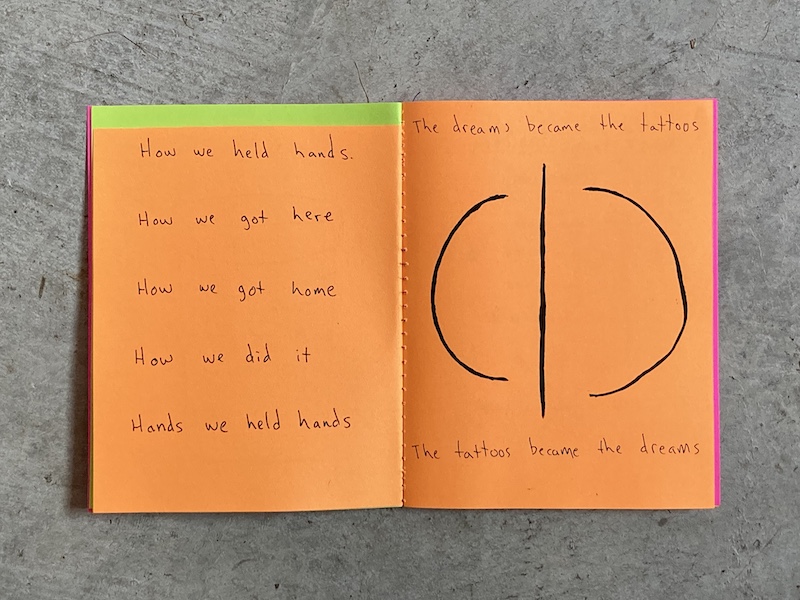 How we held hands.
How we got here
How we got home
How we did it
Hands we held hands
The dreams became the tattoos
The tattoos became the dreams